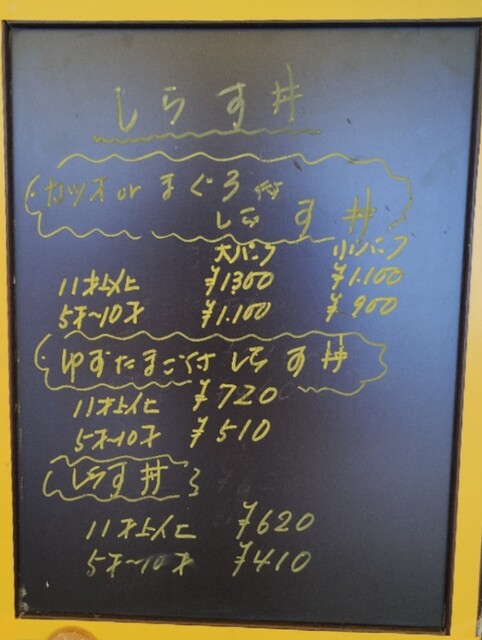 しらす丼
カツオorまぐろ付
しらす丼
大パック 小パック
11才以上 ¥1300 ¥1.100
5才〜10才 ¥1.100 ¥900
ゆずたまご付しらす丼
11才以上 ¥720
5才〜10才 ¥510
しらす丼
11才以上 ¥620
5才〜10才 ¥410